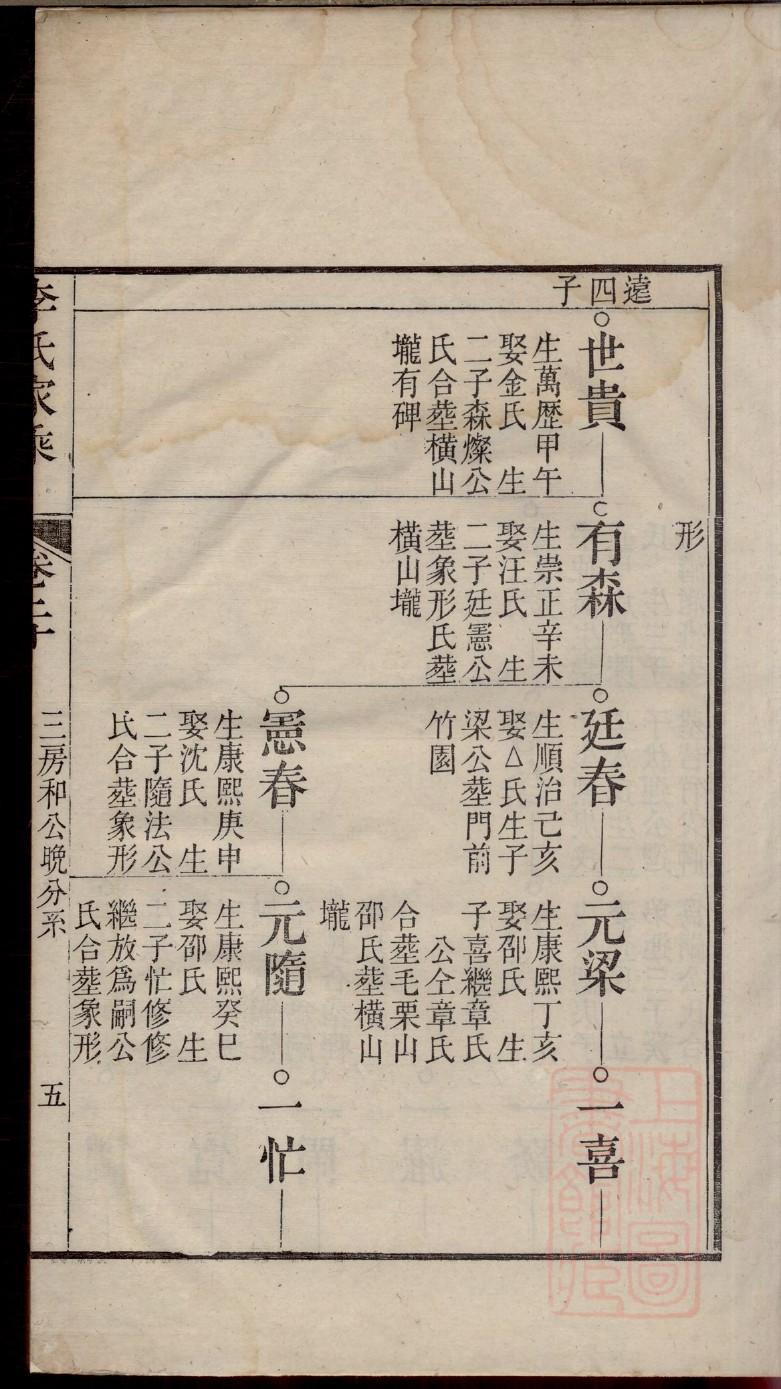 形
遠四子
世貴
生萬歷甲午
娶金氏　生
二子森燦公
氏合塟橫山
壠有碑
有森
生崇正辛未
娶汪氏　生
二子廷憲公
塟象形氏塟
橫山壠
廷春
生順治己亥
娶△氏生子
梁公塟門前
竹園
元梁
生康熙丁亥
娶邵氏　生
子喜繼章氏
公仝章氏
合塟毛栗山
邵氏塟橫山
壠
一喜
憲春
生康熙庚申
娶沈氏　生
二子隨法公
氏合塟象形
元隨
生康熙癸巳
娶邵氏　生
二子忙修修
繼放爲嗣公
氏合塟象形
一忙
李氏家乘
卷二十
三房和公晚分系
五
上海圖
書館藏